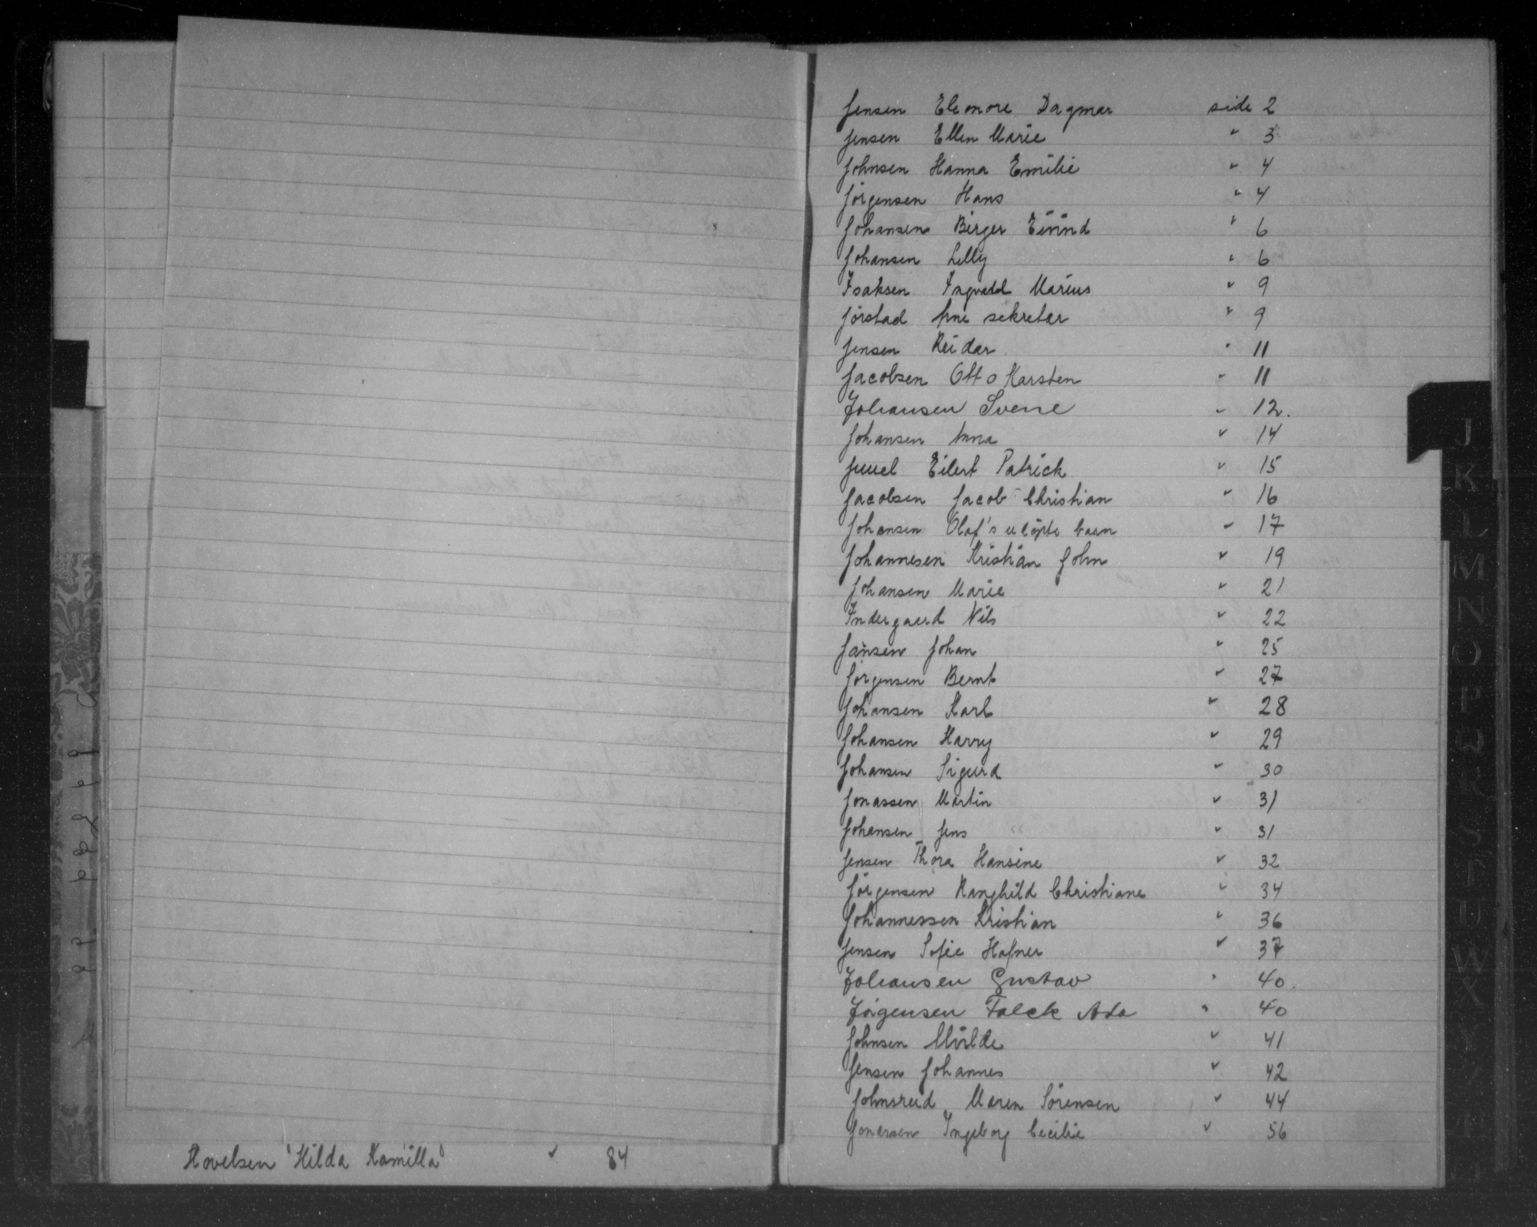 Hovelsen Hilda Kamilla " 84
Jensen Eleonore Dagmar side 2
Jensen Ellen Marie " 3
Johnsen Hanna Emilie " 4
Jörgensen Hans " 4
Johansen Birger Eivind " 6
Johansen Lilly " 6
Isaksen Ingvald Marius " 9
Jörstad Arne sekretær " 9
Jensen Reidar " 11
Jacobsen Otto Karsten " 11
Johansen Sverre " 12.
Johansen Anna " 14
Juuel Eilert Patrick " 15
Jacobsen Jacob Christian " 16
Johansen Olaf's udöpte barn " 17
Johannesen Kristian John " 19
Johansen Marie " 21
Indergaard Nils " 22
Jansen Johan " 25
Jörgensen Bernt " 27
Johansen Karl " 28
Johansen Harry " 29
Johansen Sigurd " 30
Jonassen Martin " 31
Johansen Jens " 31
Jensen Thora Hansine " 32
Jörgensen Ranghild Christiane " 34
Johannessen Kristian " 36
Jensen Sofie Hafner " 37
Johansen Gustav " 40.
Jörgensen Falck Ada " 40
Johnsen Milde " 41
Jensen Johannes " 42
Johnsreid Maren Sörensen " 44
Jonassen Ingeborg Cecilie " 56
J
K
L
M
N
O
P
R
S
T
U
W
X